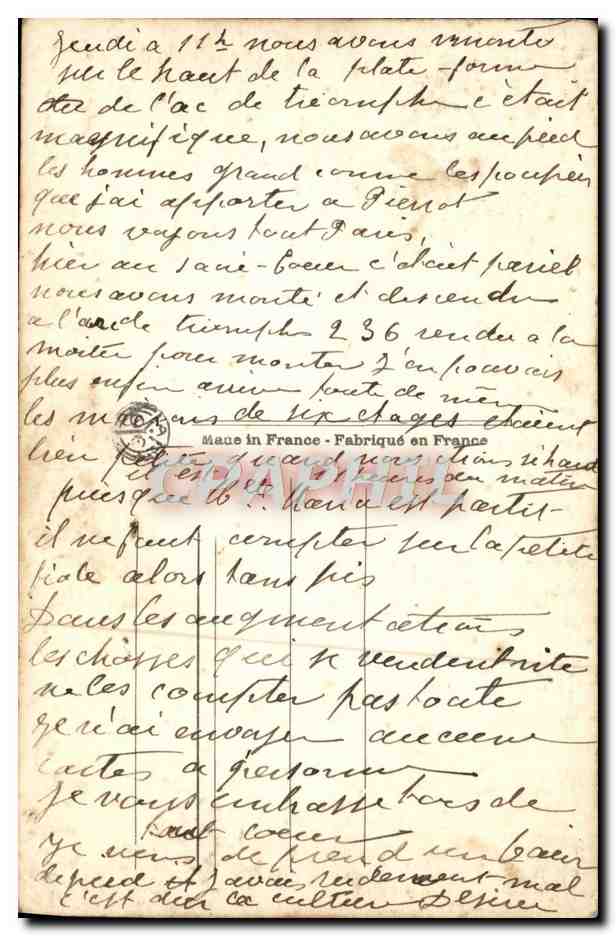 Jeudi a 11h nous avons monté
sur le haut de la plate-forme
de l'ac de triomphe c'était
magnifique, nous avons au pied
les hommes grand comme les poupées
que j'ai apporter a Pierrot
nous voyons tout Paris,
hier au Sacré-Coeur c'était pariel
nous avons monté et descendu
a l'arcde triomphe 236 rendu a la
moitié pour monter J'en pouvais
plus enfin arrivé toute de même
les maisons de six étages étaient
Made in France - Fabriqué en France
bien petite quand nous étions si haut
il est heures du matin
puisque M. est partit
il ne faut compter sur la petite
alors tans pis
Dans les augmentations
les chosses qui se vendent vite
ne les compter pas toute
je n'ai envoyer aucune
cartes a personne
Je vous embrasse tous de
tout coeur
Je viens de prend un bain
de pied j'avais rudement mal
c'est dur la culture Désiré
CPAPHIL